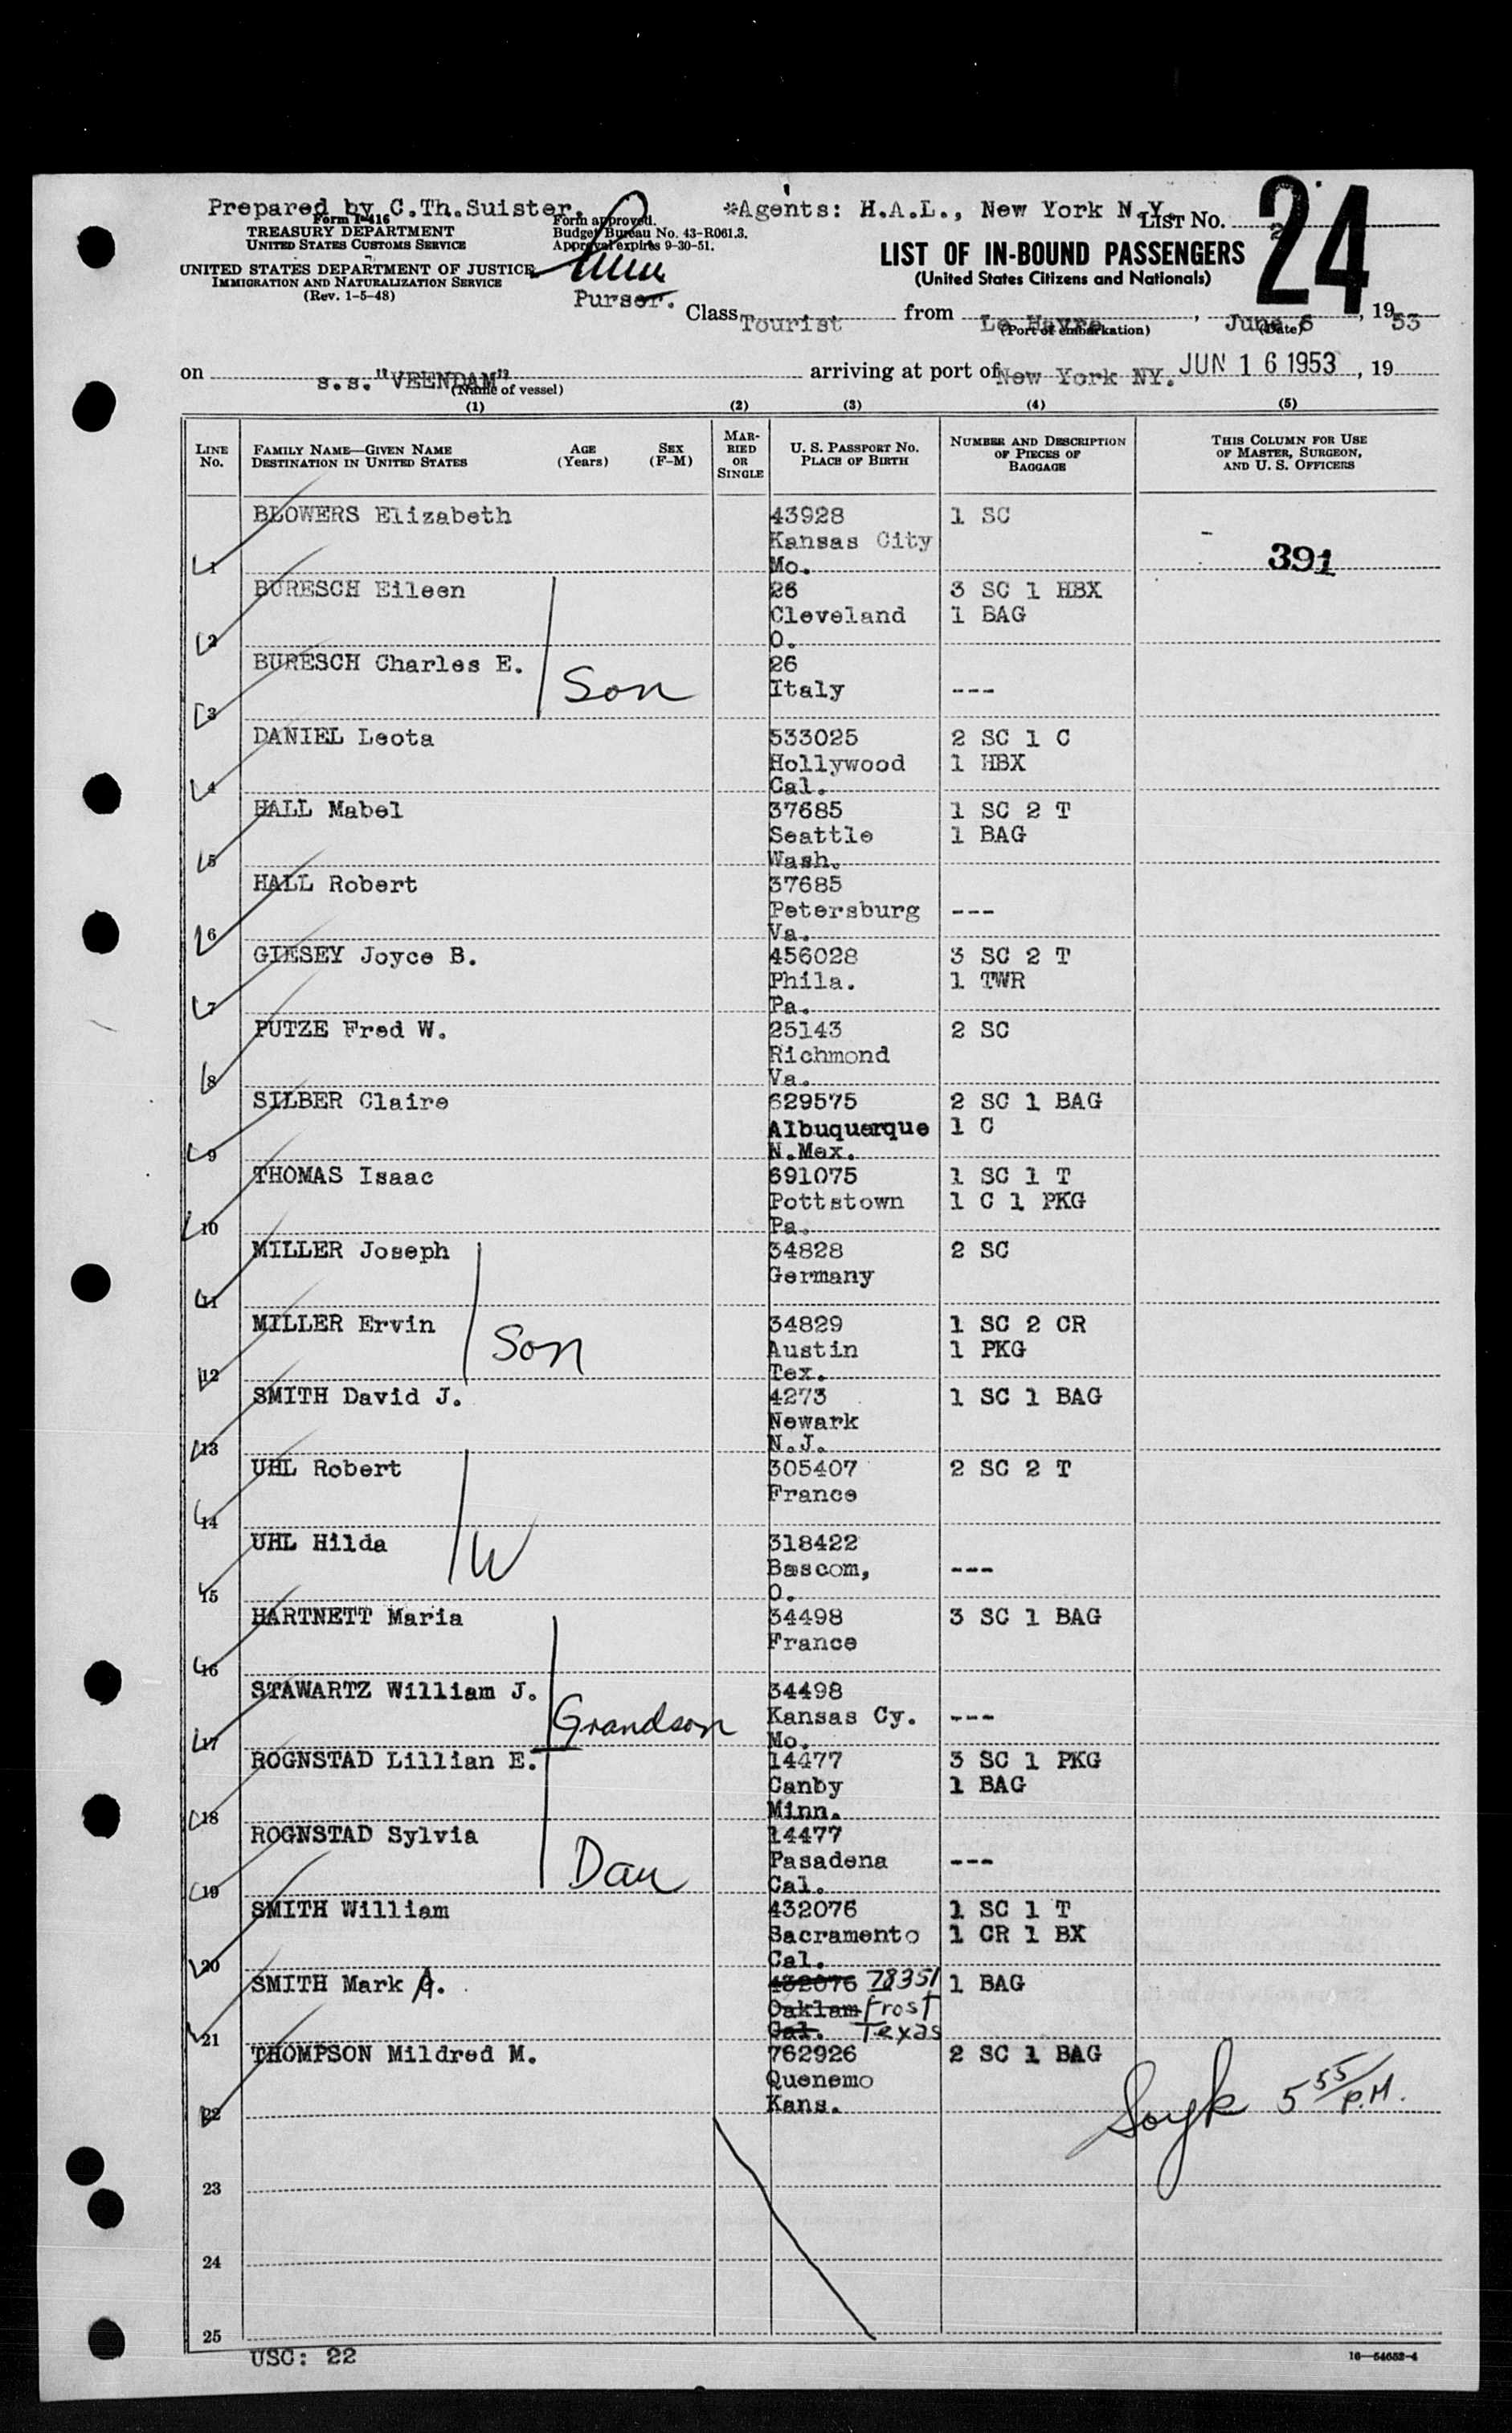 Prepared by C.Th.Suister.
*Agents: H.A.L., New York N.Y.
Form I-416
TREASURY DEPARTMENT
UNITED STATES CUSTOMS SERVICE
UNITED STATES DEPARTMENT OF JUSTICE
IMMIGRATION AND NATURALIZATION SERVICE
(Rev. 1-5-48)
Form approved.
Budget Bureau No. 43-R061.3.
Approval expires 9-30-51.
Purser.
LIST NO. 24
LIST OF IN-BOUND PASSENGERS
(United States Citizens and Nationals)
Class Tourist from Le Havre, June 6, 1953
(Port of embarkation) (Date)
on s.s."VEENDAM" arriving at port of New York NY. JUN 16 1953, 19
(Name of vessel)
(1) (2) (3) (4) (5)
LINE NO.
FAMILY NAME—GIVEN NAME
DESTINATION IN UNITED STATES
AGE (Years)
SEX (F-M)
MARRIED OR SINGLE
U. S. PASSPORT NO.
PLACE OF BIRTH
NUMBER AND DESCRIPTION OF PIECES OF BAGGAGE
THIS COLUMN FOR USE OF MASTER, SURGEON, AND U. S. OFFICERS
BLOWERS Elizabeth 43928 1 SC
Kansas City
1 Mo. 391
BURESCH Eileen 26 3 SC 1 HBX
Cleveland 1 BAG
2 O.
BURESCH Charles E. 26
Son Italy ---
3
DANIEL Leota 533025 2 SC 1 C
Hollywood 1 HBX
4 Cal.
HALL Mabel 37685 1 SC 2 T
Seattle 1 BAG
5 Wash.
HALL Robert 37685
Petersburg ---
6 Va.
GIESEY Joyce B. 456028 3 SC 2 T
Phila. 1 TWR
7 Pa.
PUTZE Fred W. 25143 2 SC
Richmond
8 Va.
SILBER Claire 629575 2 SC 1 BAG
Albuquerque 1 C
9 N.Mex.
THOMAS Isaac 691075 1 SC 1 T
Pottstown 1 C 1 PKG
10 Pa.
MILLER Joseph 34828 2 SC
Germany
11
MILLER Ervin 34829 1 SC 2 CR
Son Austin 1 PKG
12 Tex.
SMITH David J. 4273 1 SC 1 BAG
Newark
13 N.J.
UHL Robert 305407 2 SC 2 T
France
14
UHL Hilda 318422
W Bascom, ---
15 O.
HARTNETT Maria 34498 3 SC 1 BAG
France
16
STAWARTZ William J. 34498
Grandson Kansas Cy. ---
17 Mo.
ROGNSTAD Lillian E. 14477 3 SC 1 PKG
Canby 1 BAG
18 Minn.
ROGNSTAD Sylvia 14477
Dau Pasadena ---
19 Cal.
SMITH William 432076 1 SC 1 T
Sacramento 1 CR 1 BX
20 Cal.
SMITH Mark A. 432076 78351 1 BAG
Oaklam Frost
21 Cal. Texas
THOMPSON Mildred M. 762926 2 SC 1 BAG
Quenemo
22 Kans. 5 55/P.M.
23
24
25
USC: 22
16—54652-4